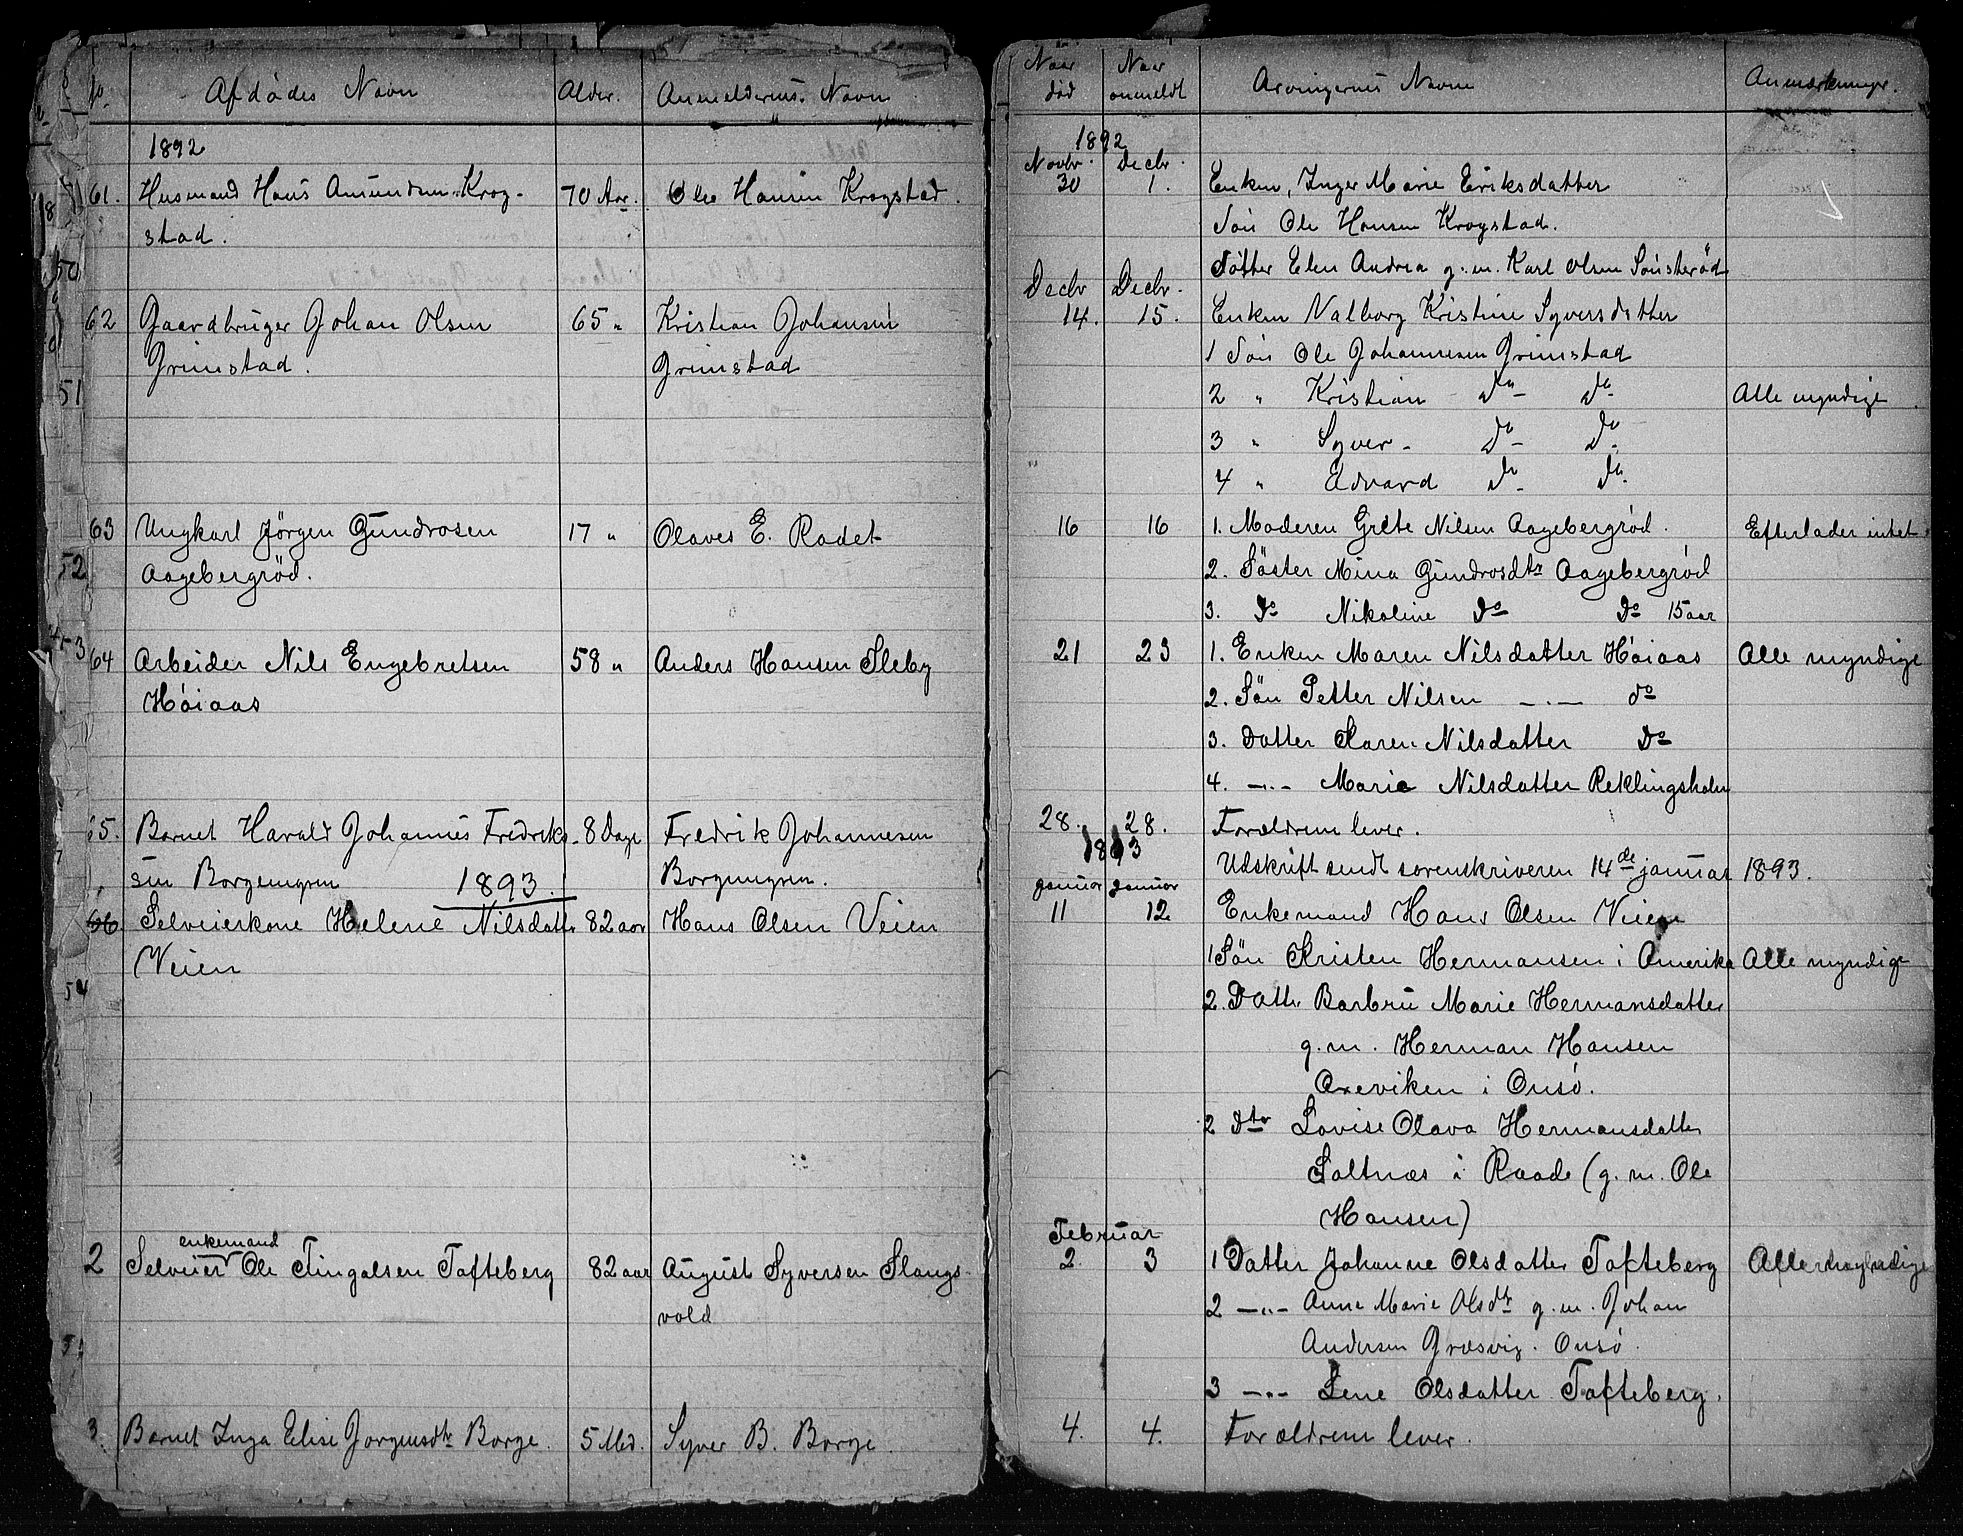 No. Afdødes Navn Alder. Anmelderens Navn
1892
61. Husmand Hans Amundsen Krog- 70 Aar. Ole Hansen Krogstad.
stad.
62 Gaardbruger Johan Olsen 65 " Kristian Johansen
Grimstad. Grimstad
63 Ungkarl Jörgen Gundrosen 17 " Olaves E. Rodet
Aagebergrød.
64 Arbeider Nils Engebretsen 58 " Anders Hansen Sleby
Höiaas
65. Barnet Harald Johannes Fredrik- 8 Dage Fredrik Johannesen
sen Borgeengren Borgeengren.
1893.
66. Selveierkone Helene Nilsdatt. 82 aar Hans Olsen Veien
Veien
enkemand
2 Selveier Ole Fingalsen Tofteberg 82 aar August Syversen Slangs-
vold
3. Barnet Inga Elise Jorgensdtr Borge. 5 Md. Syver B. Borge.
Naar Naar Arvingernes Navne Anmærkninger.
död anmeldt
1892
Novbr. Decbr.
30 1. Enken, Inger Marie Eriksdatter
Sön Ole Hansen Krogstad.
Dötter Elen Andrea g.m. Karl Olsen Sönsteröd
Decbr Decbr.
14. 15. Enken Valborg Kristine Syversdatter
1 Sön Ole Johannesen Grimstad
2 " Kristian do do Alle myndige
3 " Syver - do do
4 " Edvard do do
16 16 1. Moderen Grete Nilsen Aagebergrød. Efterlader intet.
2. Söster Mina Gundrosdtr Aagebergrød
3. Do Nikoline do do 15 aar
21 23 1. Enken Maren Nilsdatter Höiaas Alle myndige
2. Sön Petter Nilsen —"— do
3. Datter Karen Nilsdatter do
4. —"— Marie Nilsdatter Reklingsholm
28. 28. Forældrene lever.
1893
Udskrift sendt sorenskriveren 14de januar 1893.
Januar Januar
11 12 Enkemand Hans Olsen Veien
1 Sön Kristen Hermansen i Amerika Alle myndige
2. Dattr Barbru Marie Hermansdatter
g.m. Herman Hansen
Oreviken i Onsö.
2 Dtr Lovise Olava Hermansdatter
Saltnæs i Raade (g.m. Ole
Hansen)
Februar
2. 3 1 Datter Johanne Olsdatter Tofteberg Alle myndige
2 —"— Anne Marie Olsdtr g.m. Johan
Andersen Græsvig. Onsö.
3 —"— Lene Olsdatter Tofteberg.
4. 4. Forældrene lever.